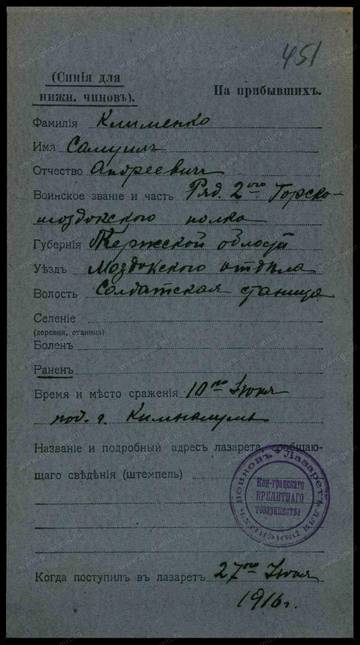 451
(Синія для
нижн. чиновъ).
На прибывшихъ.
Фамилія Клименко
Имя Самуилъ
Отчество Андреевичъ
Воинское званіе и часть Ряд. 2ого Горско-
моздокского полка
Губернія Терской области
Уѣздъ Моздокского отдѣла
Волость Солдатская станица
Селеніе
(деревня, станица)
Боленъ
Раненъ
Время и мѣсто сраженія 10го Іюня
под. г.
Названіе и подробный адресъ лазарета, сообщаю-
щаго свѣдѣнія (штемпель)
Лазаретъ для воиновъ
КРЕДИТНАГО
товарищества
Когда поступилъ въ лазаретъ 27го Іюня
1916 г.